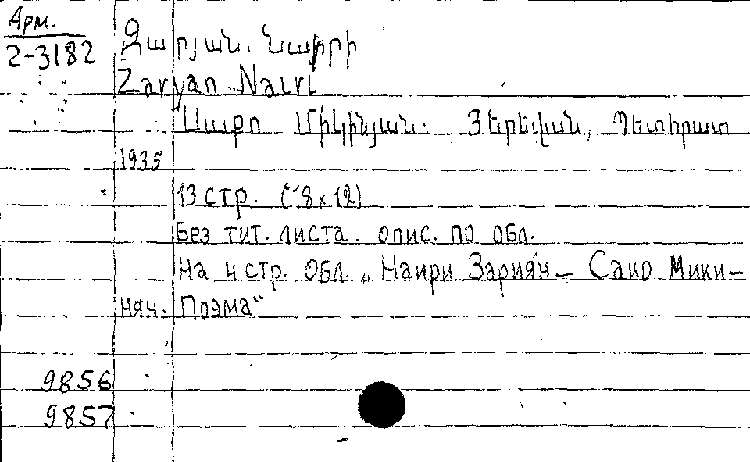 Арм.
2-3182
Զարյան. Նաիրի
Zaryan Nairi
Սաքո Միկինյան. Յերեվան, Պետհրատ
1935
13 стр. (18 x 12)
Без тит. листа. опис. по обл.
На 4 стр. обл. „Наири Зариян – Сако Мики–
нян. Поэма“
9856
9857